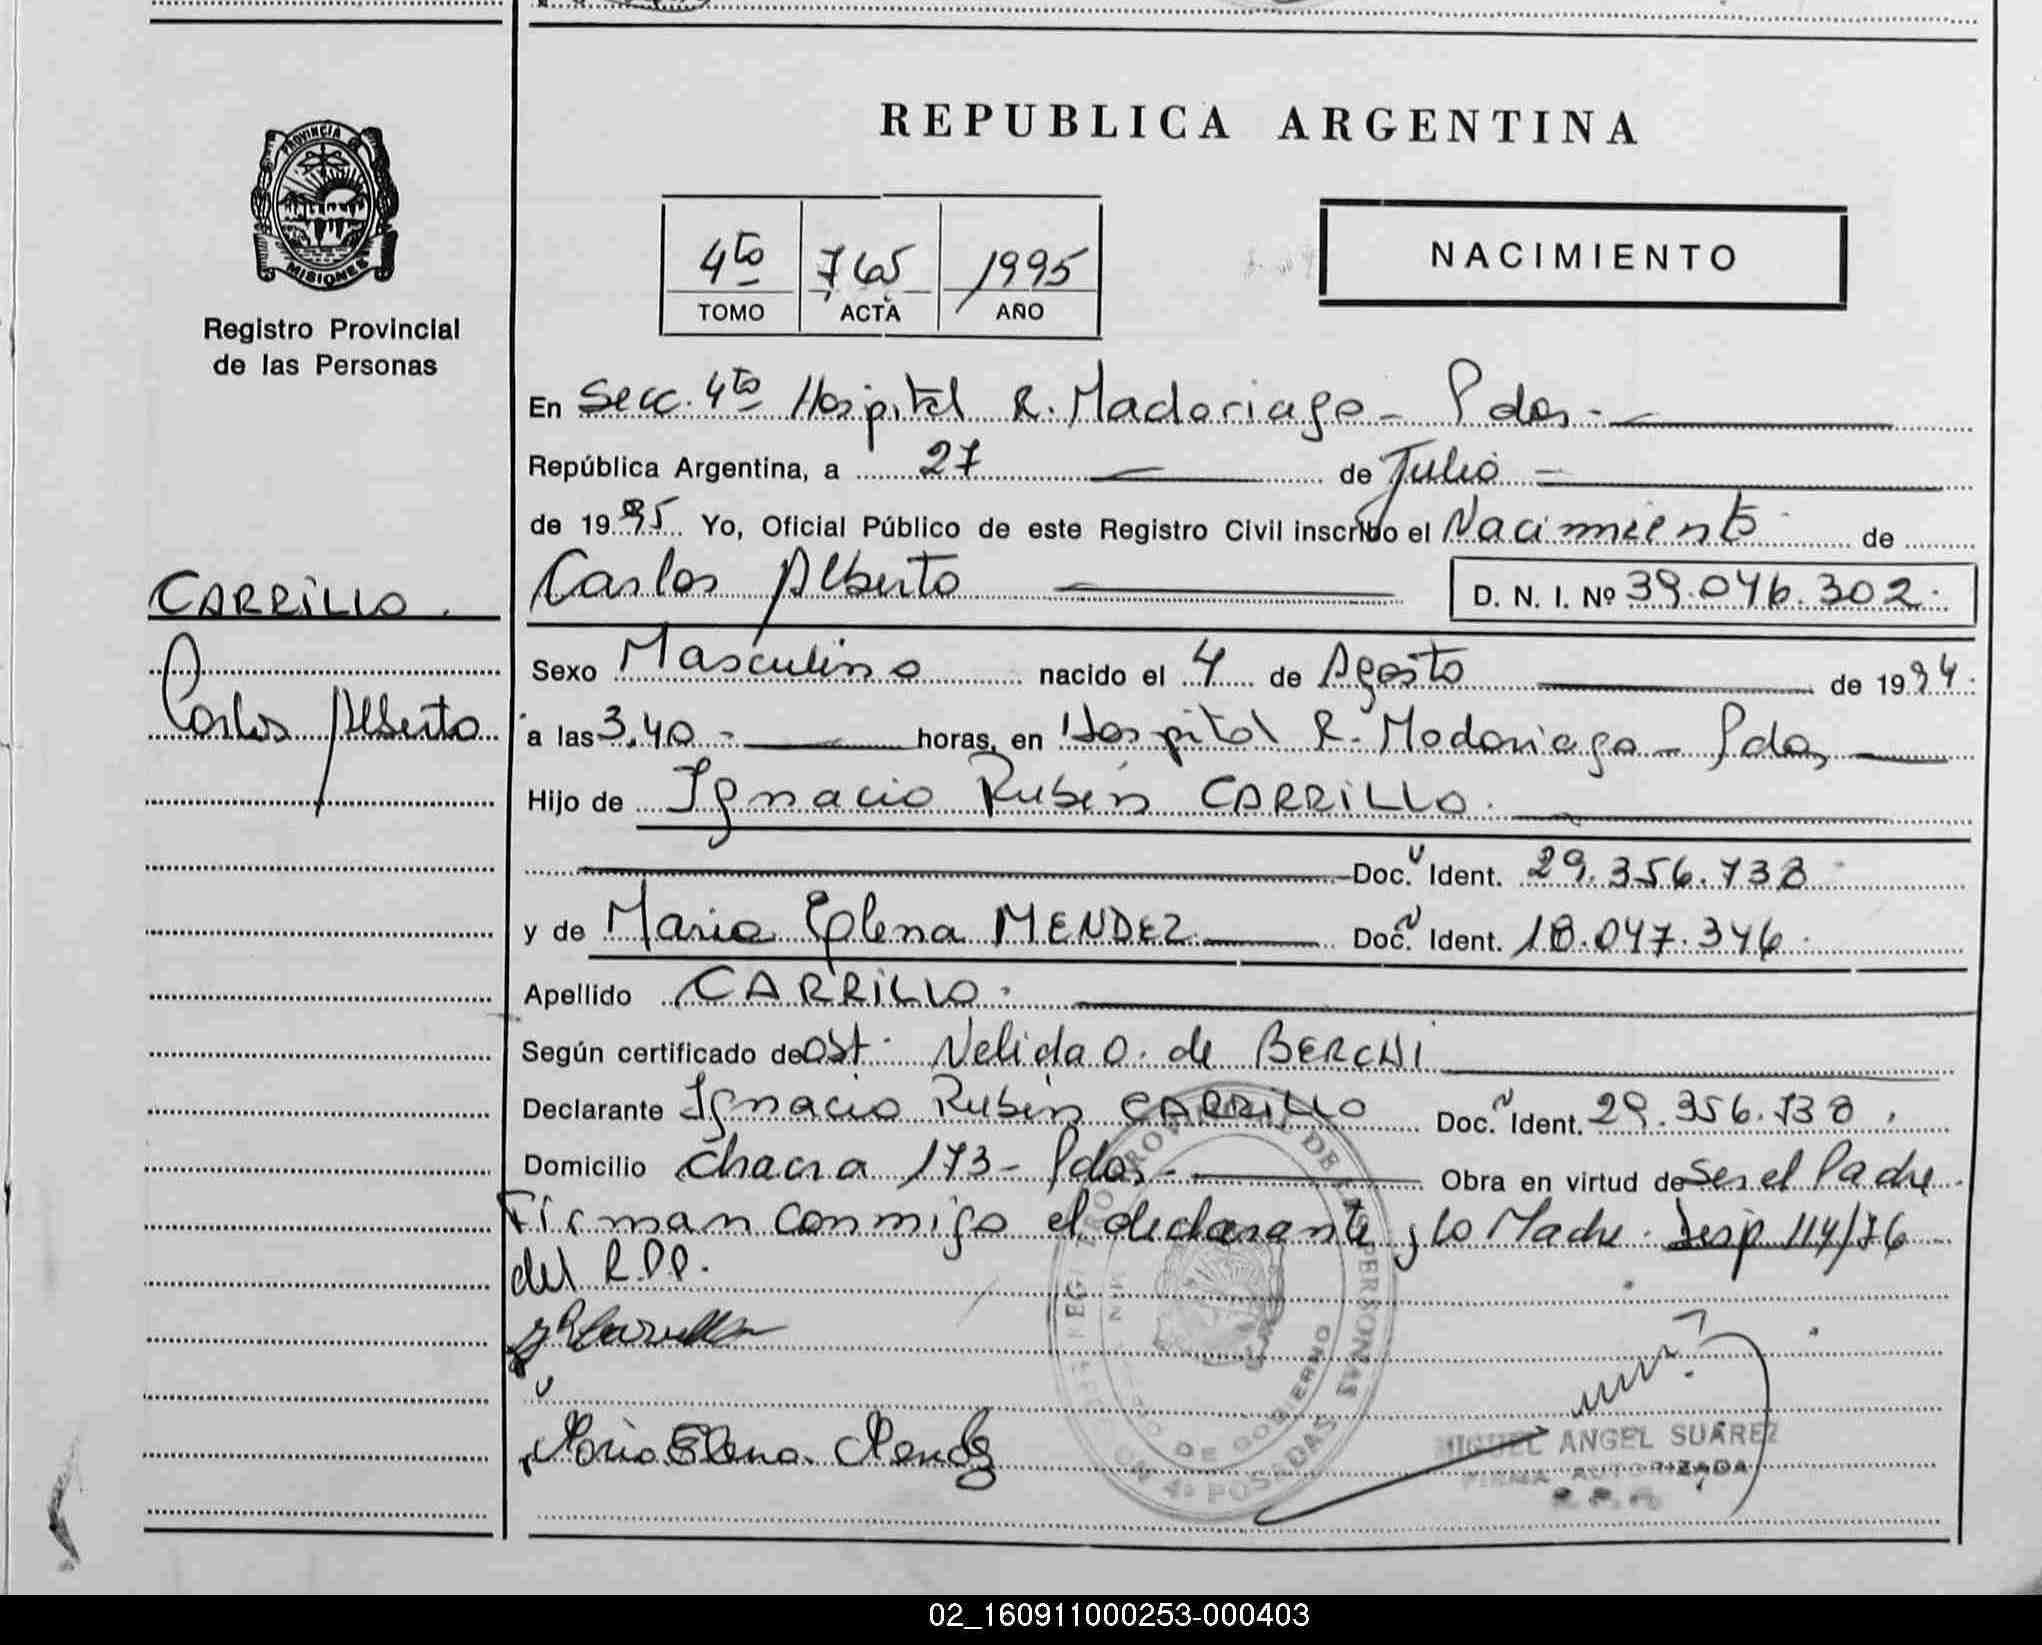 REPUBLICA ARGENTINA
PROVINCIA
MISIONES
Registro Provincial
de las Personas
4to 765 1995
TOMO ACTA AÑO
NACIMIENTO
En Secc. 4to Hospital R. Madariaga - Pdas.-
República Argentina, a 27 de Julio
de 1995 Yo, Oficial Público de este Registro Civil inscribo el Nacimiento de
CARRILLO.
Carlos Alberto
Carlos Alberto D. N. I. Nº 39.046.302.
Sexo Masculino nacido el 4 de Agosto de 1994.
a las 3,40 - horas, en Hospital R. Madariaga - Pdas
Hijo de Ignacio Rubén CARRILLO.
Doc. Ident. 29.356.738
y de Maria Elena MENDEZ Doc. Ident. 18.047.346.
Apellido CARRILLO.
Según certificado de Ost. Nelida O. de BERCHI
Declarante Ignacio Rubén CARRILLO Doc. Ident. 29.356.738.
Domicilio Chacra 173 - Pdas.- Obra en virtud de Ser el Padre.
Firman conmigo el declarante y la Madre. Desp 114/76
del R.P.P.
Maria Elena Mendez
MIGUEL ANGEL SUAREZ
FIRMA AUTORIZADA
R.P.P.
DE LAS PERSONAS
DE GOBIERNO
4ª POSADAS
02_160911000253-000403